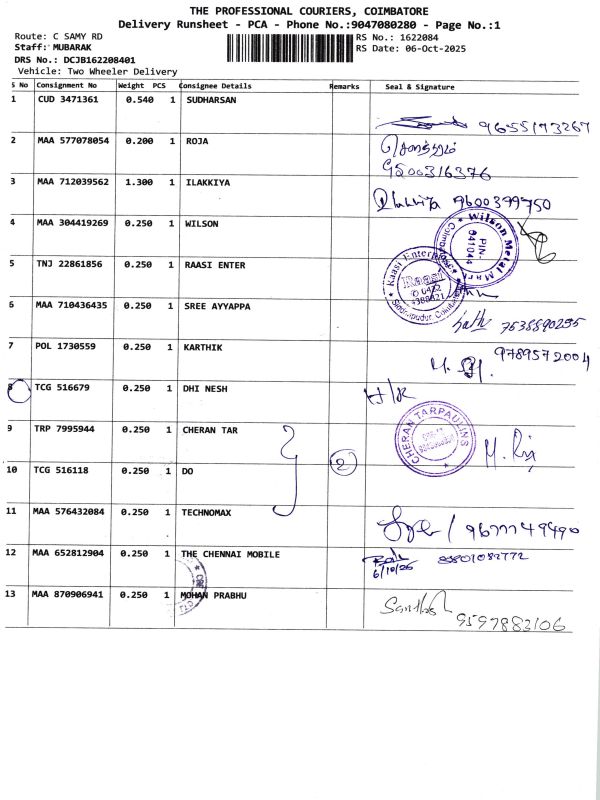 THE PROFESSIONAL COURIERS, COIMBATORE
Delivery Runsheet - PCA - Phone No.:9047080280 - Page No.:1
Route: C SAMY RD
RS No.: 1622084
Staff: MUBARAK
RS Date: 06-Oct-2025
DRS No.: DCJB162208401
Vehicle: Two Wheeler Delivery
S No Consignment No Weight PCS Consignee Details Remarks Seal & Signature
1 CUD 3471361 0.540 1 SUDHARSAN
9655173267
2 MAA 577078054 0.200 1 ROJA
3 MAA 712039562 1.300 1 ILAKKIYA
9600399750
4 MAA 304419269 0.250 1 WILSON
Wilson Metal Mart
PIN
641044
5 TNJ 22861856 0.250 1 RAASI ENTER
Raasi Enterprises
Raasi
6 MAA 710436435 0.250 1 SREE AYYAPPA
7538890295
7 POL 1730559 0.250 1 KARTHIK
9789572004
8 TCG 516679 0.250 1 DHI NESH
H/R
9 TRP 7995944 0.250 1 CHERAN TAR
CHERAN TARPAULINS
10 TCG 516118 0.250 1 DO
2
11 MAA 576432084 0.250 1 TECHNOMAX
12 MAA 652812904 0.250 1 THE CHENNAI MOBILE
6/10/25
13 MAA 870906941 0.250 1 MOHAN PRABHU
9597883106